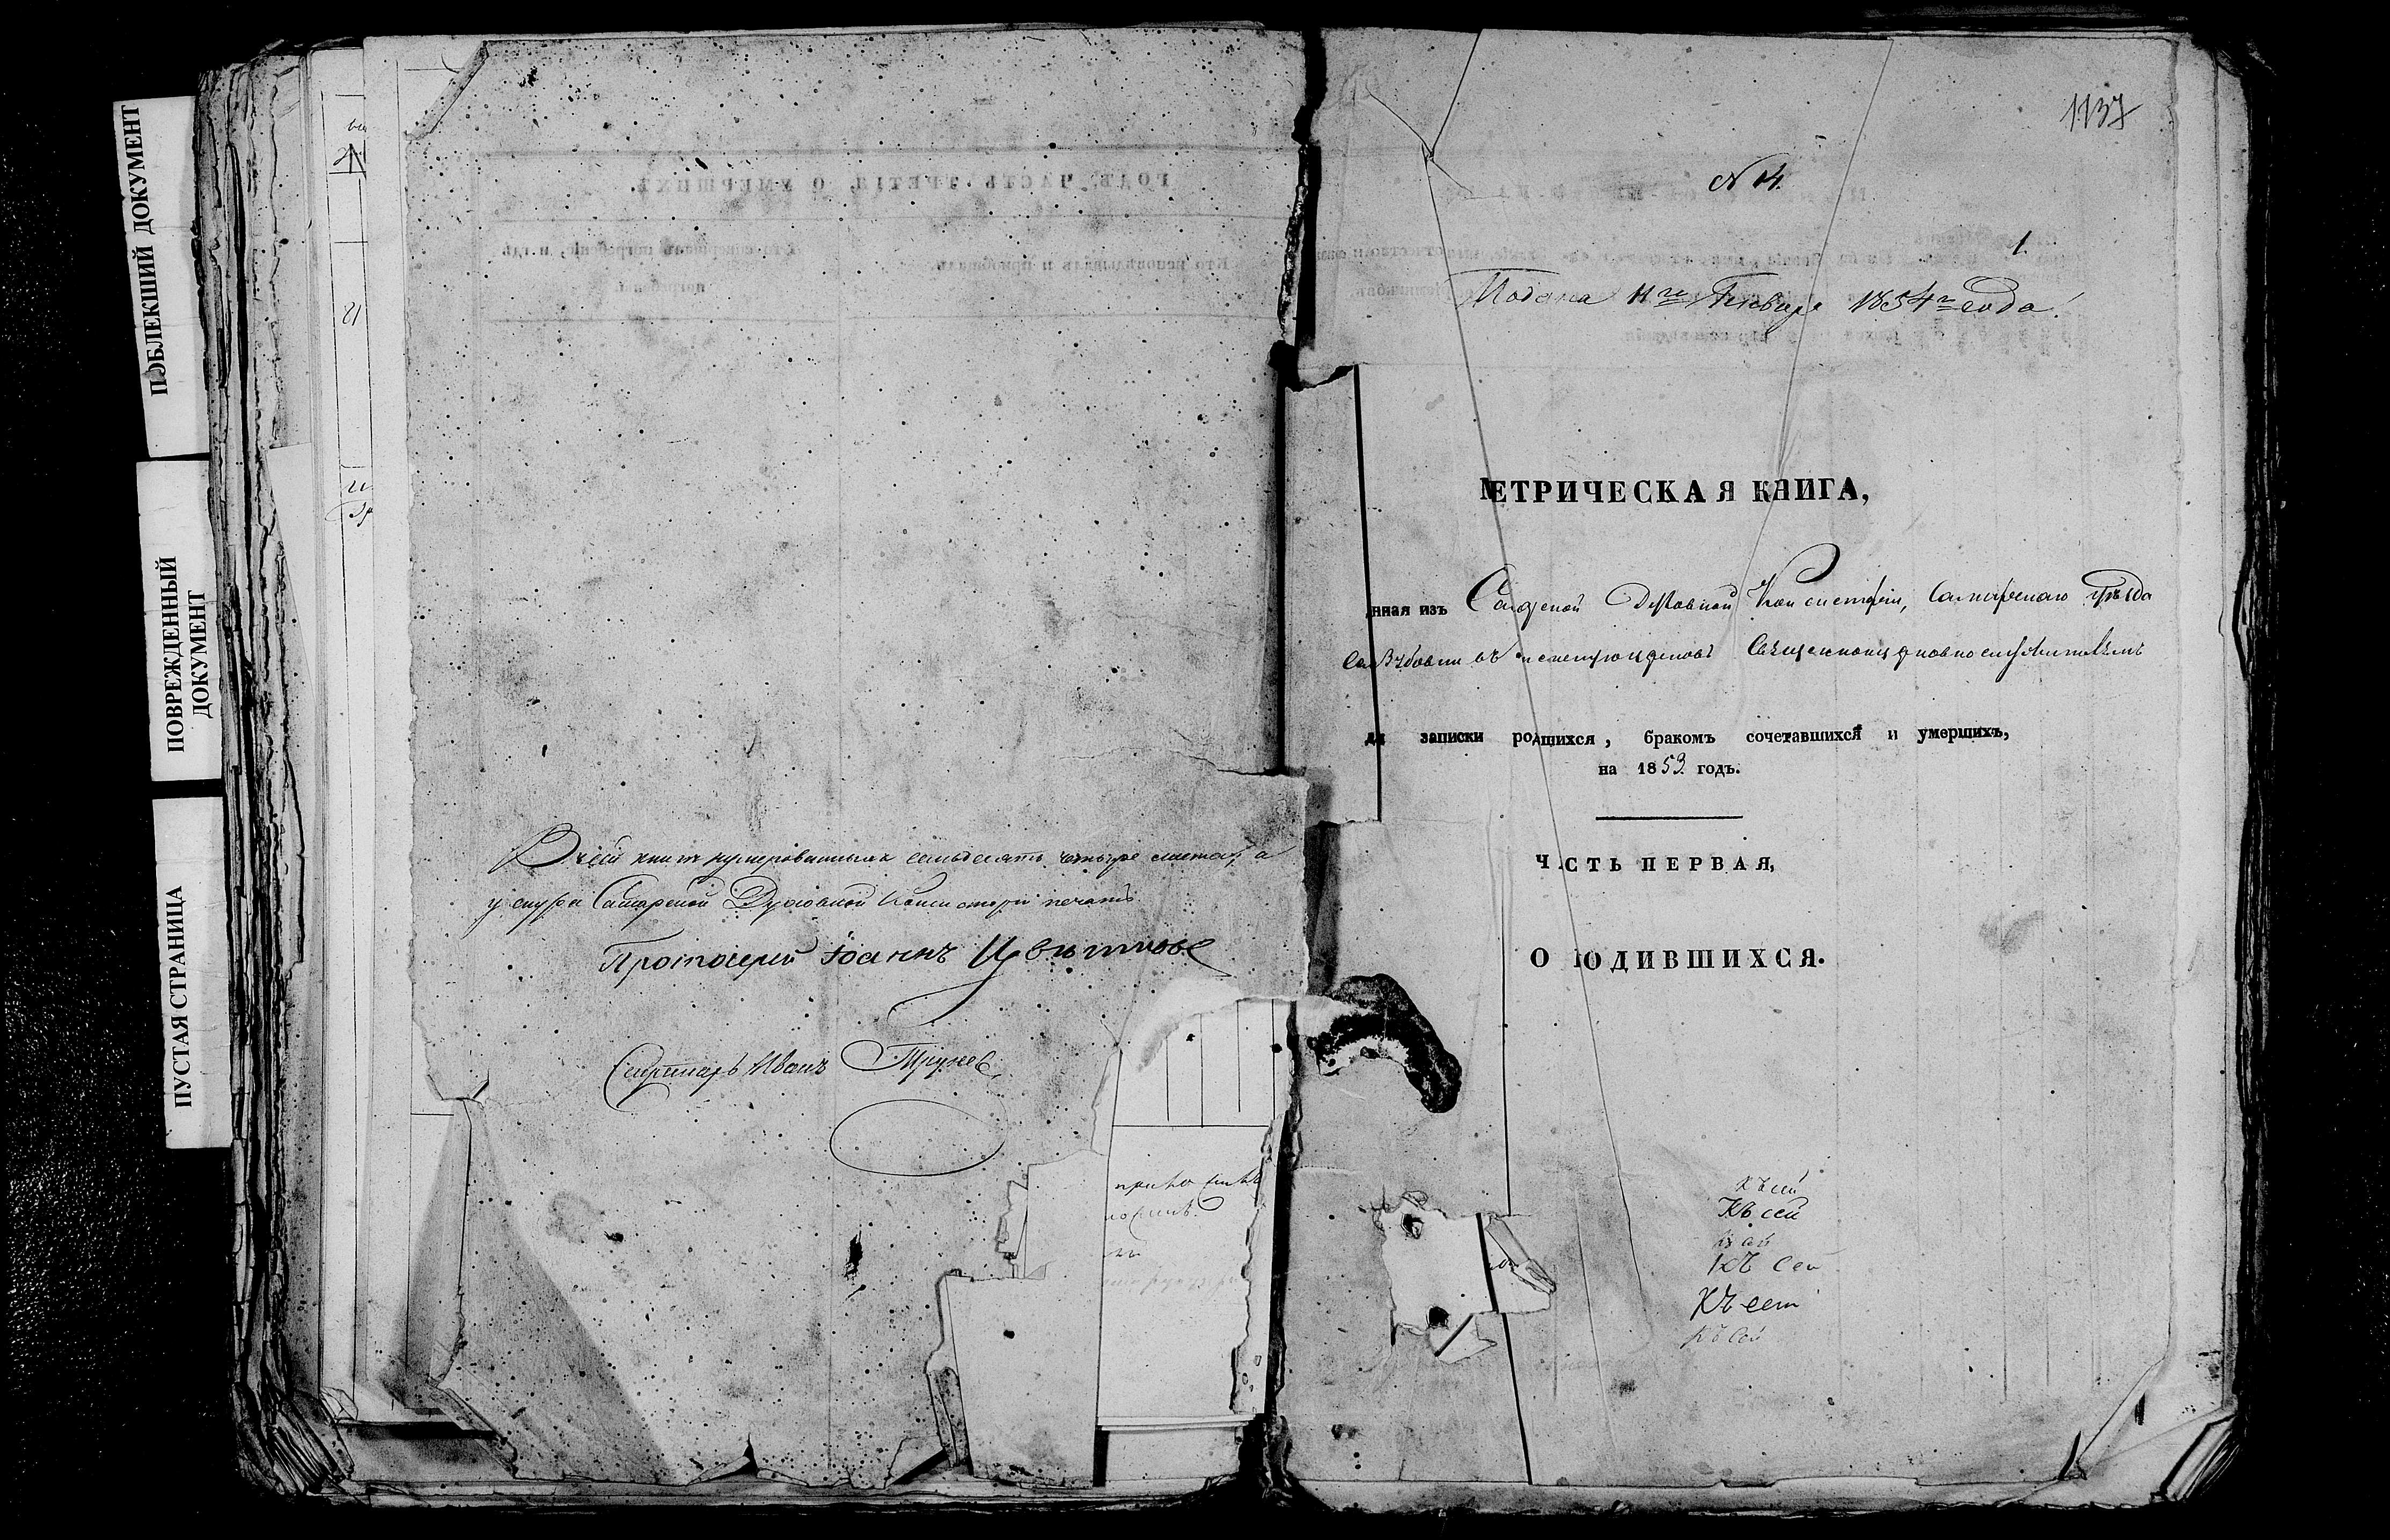 ПОБЛЕКШИЙ ДОКУМЕНТ
ПОВРЕЖДЕННЫЙ
ДОКУМЕНТ
ПУСТАЯ СТРАНИЦА
ГОДЪ, ЧАСТЬ ТРЕТІЯ, О УМЕРШИХЪ.
Кто исповѣдывалъ и пріобщалъ.
Кто совершалъ погребеніе, и гдѣ
погребены.
В сей книге нумерованныхъ семьдесятъ четыре листа, а
у снура Самарской Духовной Консисторіи печать.
Протоіерей Іоаннъ Цвѣтковъ
Секретарь Иванъ
1137
N 4.
1.
Подана 11го Генваря 1854го года.
ЕТРИЧЕСКАЯ КНИГА,
нная изъ Самарской Духовной Консисторіи, Самарскаго уѣзда
Священноцерковнослужителямъ
записки родшихся, бракомъ сочетавшихся и умершихъ,
на 1853 годъ.
Ч СТЬ ПЕРВАЯ,
О ОДИВШИХСЯ.
къ сей
Къ сей
Къ сей
Къ сей
къ сей